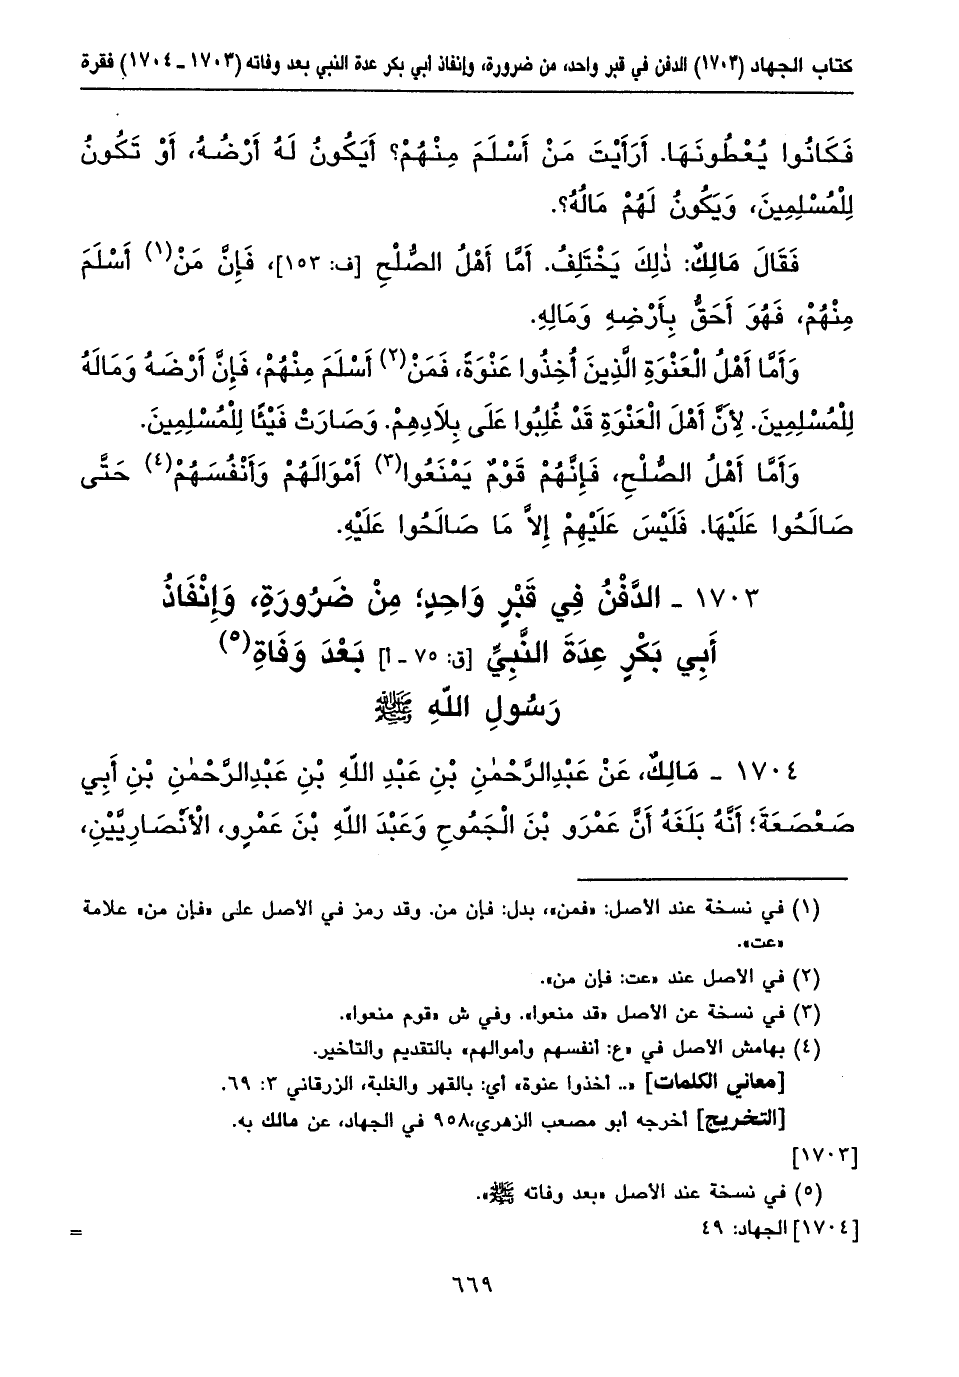 كتاب الجهاد (١٧٠٣) الدفن في قبر واحد، من ضرورة، وإنفاذ أبي بكر عدة النبي بعد وفاته (١٧٠٣ - ١٧٠٤) فقرة
فَكَانُوا يُعْطُونَهَا. أَرَأَيْتَ مَنْ أَسْلَمَ مِنْهُمْ؟ أَيَكُونُ لَهُ أَرْضُهُ، أَوْ تَكُونُ
لِلْمُسْلِمِينَ، وَيَكُونُ لَهُمْ مَالُهُ؟.
فَقَالَ مَالِكٌ: ذٰلِكَ يَخْتَلِفُ. أَمَّا أَهْلُ الصُّلْحِ [ف: ١٥٣]، فَإِنَّ مَنْ(١) أَسْلَمَ
مِنْهُمْ، فَهُوَ أَحَقُّ بِأَرْضِهِ وَمَالِهِ.
وَأَمَّا أَهْلُ الْعَنْوَةِ الَّذِينَ أُخِذُوا عَنْوَةً، فَمَنْ(٢) أَسْلَمَ مِنْهُمْ، فَإِنَّ أَرْضَهُ وَمَالَهُ
لِلْمُسْلِمِينَ. لِأَنَّ أَهْلَ الْعَنْوَةِ قَدْ غُلِبُوا عَلَى بِلَادِهِمْ. وَصَارَتْ فَيْئًا لِلْمُسْلِمِينَ.
وَأَمَّا أَهْلُ الصُّلْحِ، فَإِنَّهُمْ قَوْمٌ يَمْنَعُوا(٣) أَمْوَالَهُمْ وَأَنْفُسَهُمْ(٤) حَتَّى
صَالَحُوا عَلَيْهَا. فَلَيْسَ عَلَيْهِمْ إِلاَّ مَا صَالَحُوا عَلَيْهِ.
١٧٠٣ - الدَّفْنُ فِي قَبْرٍ وَاحِدٍ؛ مِنْ ضَرُورَةٍ، وَإِنْفَاذُ
أَبِي بَكْرٍ عِدَةَ النَّبِيِّ [ق: ٧٥ - أ] بَعْدَ وَفَاةِ(٥)
رَسُولِ اللّٰهِ ﷺ
١٧٠٤ - مَالِكٌ، عَنْ عَبْدِالرَّحْمٰنِ بْنِ عَبْدِ اللّٰهِ بْنِ عَبْدِالرَّحْمٰنِ بْنِ أَبِي
صَعْصَعَةَ؛ أَنَّهُ بَلَغَهُ أَنَّ عَمْرَو بْنَ الْجَمُوحِ وَعَبْدَ اللّٰهِ بْنَ عَمْرٍو، الْأَنْصَارِيَّيْنِ،
(١) في نسخة عند الأصل: «فمن»، بدل: فإن من. وقد رمز في الأصل على «فإن من» علامة
«عت».
(٢) في الأصل عند «عت: فإن من».
(٣) في نسخة عن الأصل «قد منعوا». وفي ش «قوم منعوا».
(٤) بهامش الأصل في «ع: أنفسهم وأموالهم» بالتقديم والتأخير.
[معاني الكلمات] «.. أخذوا عنوة» أي: بالقهر والغلبة، الزرقاني ٣: ٦٩.
[التخريج] أخرجه أبو مصعب الزهري، ٩٥٨ في الجهاد، عن مالك به.
[١٧٠٣]
(٥) في نسخة عند الأصل «بعد وفاته ﷺ».
[١٧٠٤] الجهاد: ٤٩
=
٦٦٩